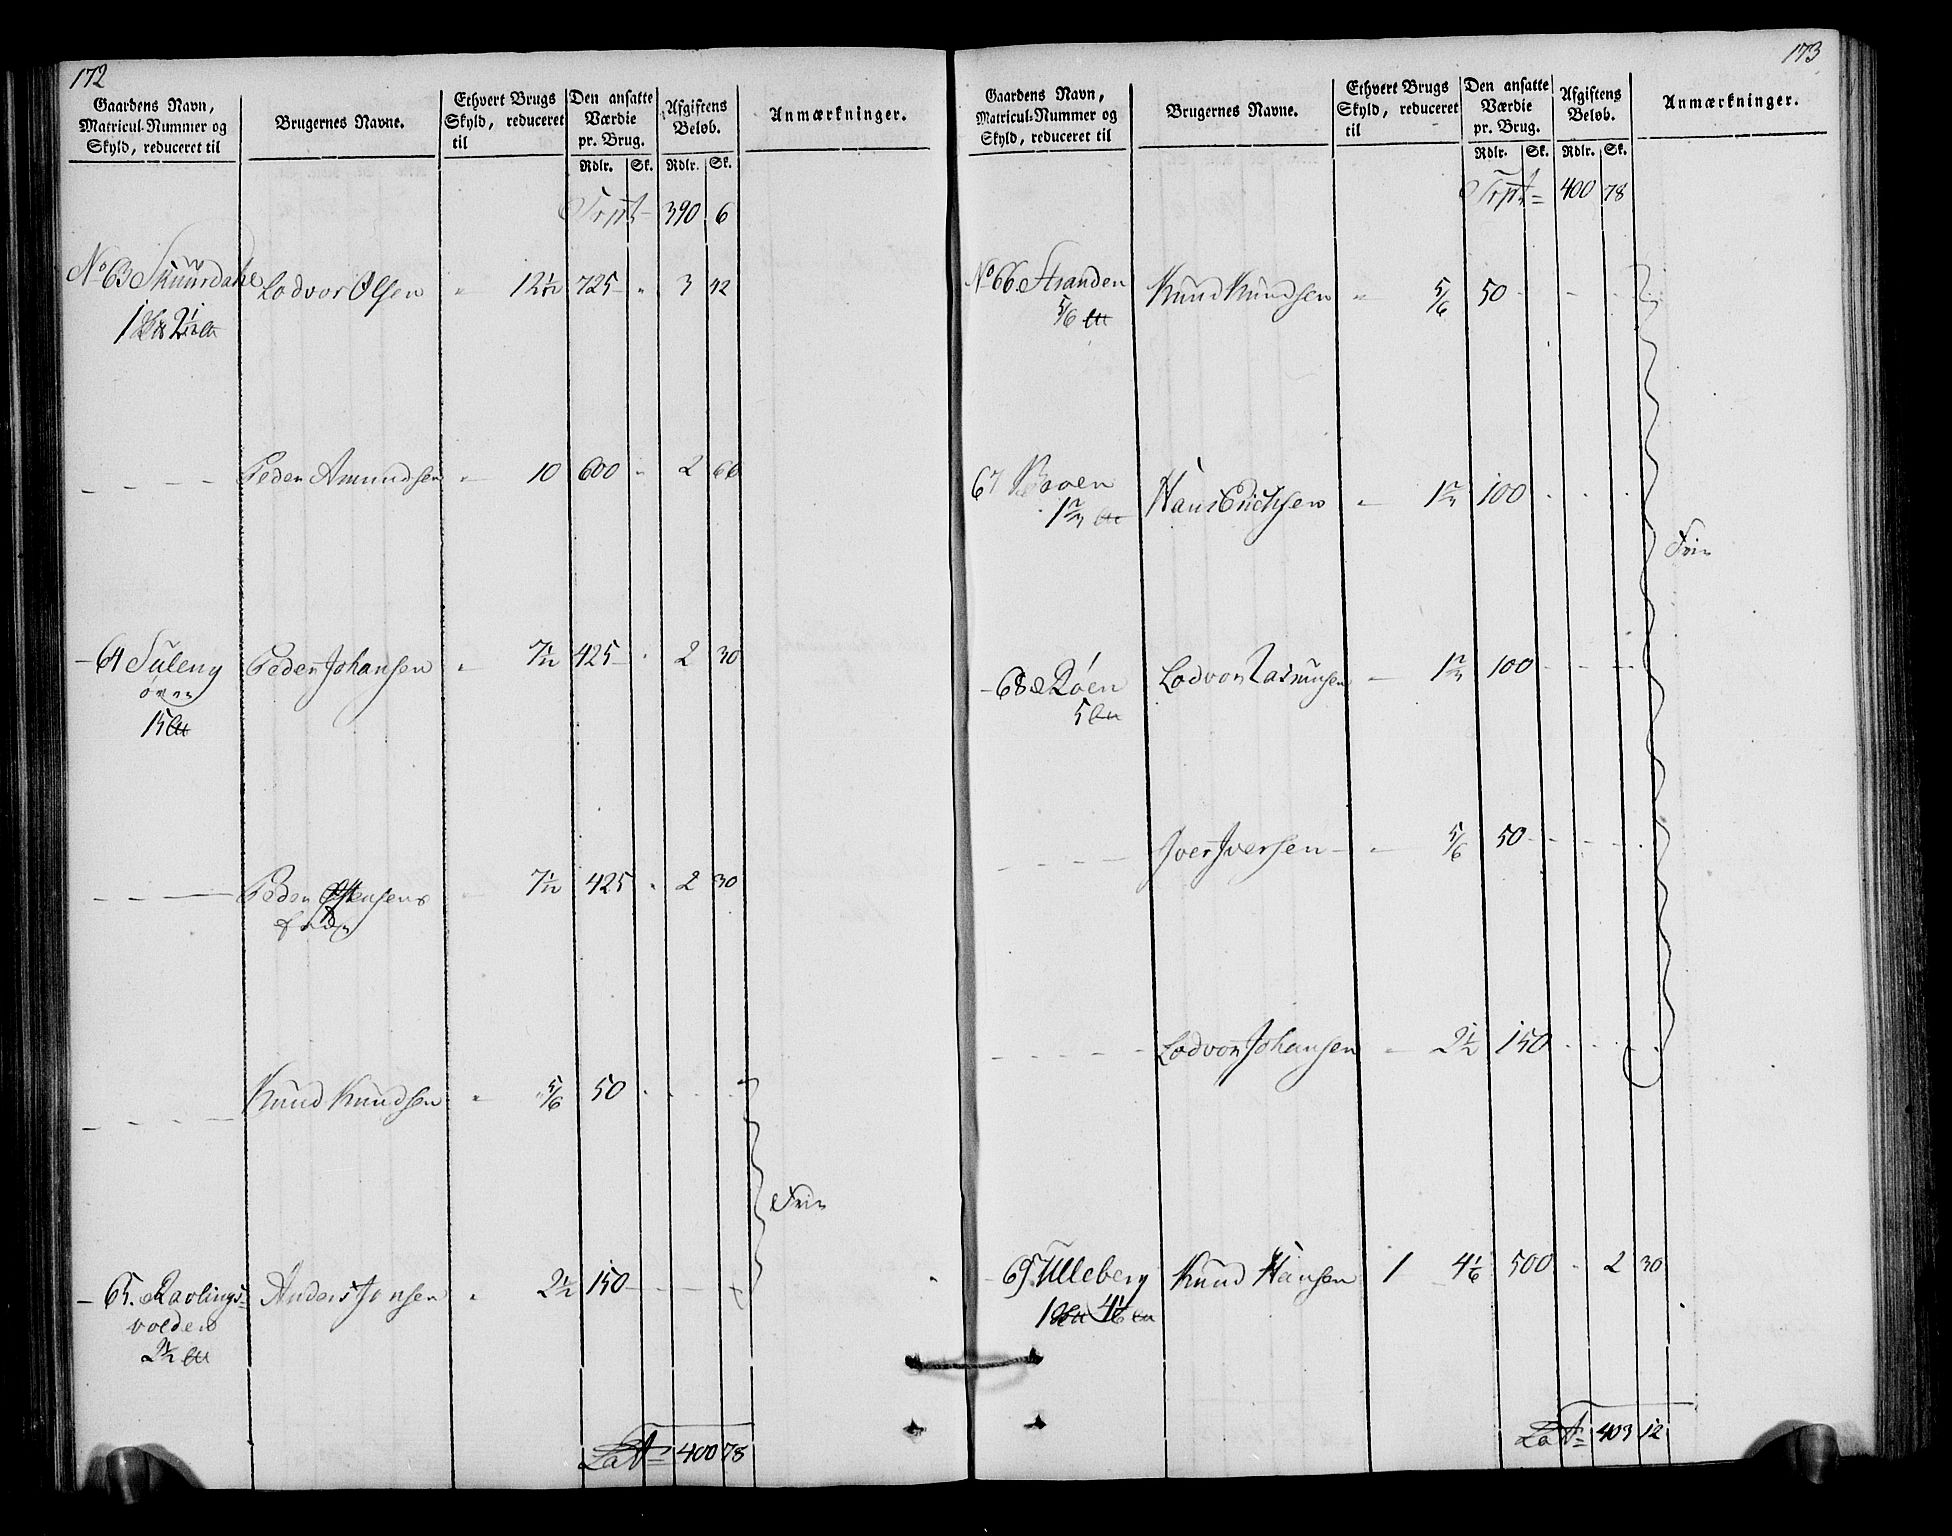 172
Gaardens Navn, Matricul-Nummer og Skyld, reduceret til
Brugernes Navne.
Ethvert Brugs Skyld, reduceret til
Den ansatte Værdie pr. Brug.
Afgiftens Beløb.
Anmærkninger.
Rdlr. Sk. Rdlr. Sk.
Trpt 390 6
No 63 Skuurdahl Lodvor Olsen " 12 1/12 725 " 3 42
1 2 1/12
Peder Amundsen " 10 600 " 2 66
64 Suleng Peder Johansen " 7 1/12 425 " 2 30
øvre
15
Peder Ostensens 7 1/12 425 " 2 30
Knud Knudsen " 5/6 50
Frie
65. Ravlings- Anders Jonsen " 2 1/2 150
volden
2 1/2
Lat 400 78
173
Gaardens Navn, Matricul-Nummer og Skyld, reduceret til
Brugernes Navne.
Ethvert Brugs Skyld, reduceret til
Den ansatte Værdie pr. Brug.
Afgiftens Beløb.
Anmærkninger.
Rdlr. Sk. Rdlr. Sk.
Trpt 400 78
No 66 Stranden Knud Knudsen " 5/6 50
5/6
67 Hans Erichsen " 1 2/3 100
1 2/3
Frie
68 Røen Lodvor Rasmusen 1 2/3 100
5
Iver Iversen " 5/6 50
Lodvor Johansen " 2 1/2 150
69 Ulleberg Knud Hansen 1 4 1/6 500 " 2 30
1 4 1/6
Lat 403 12